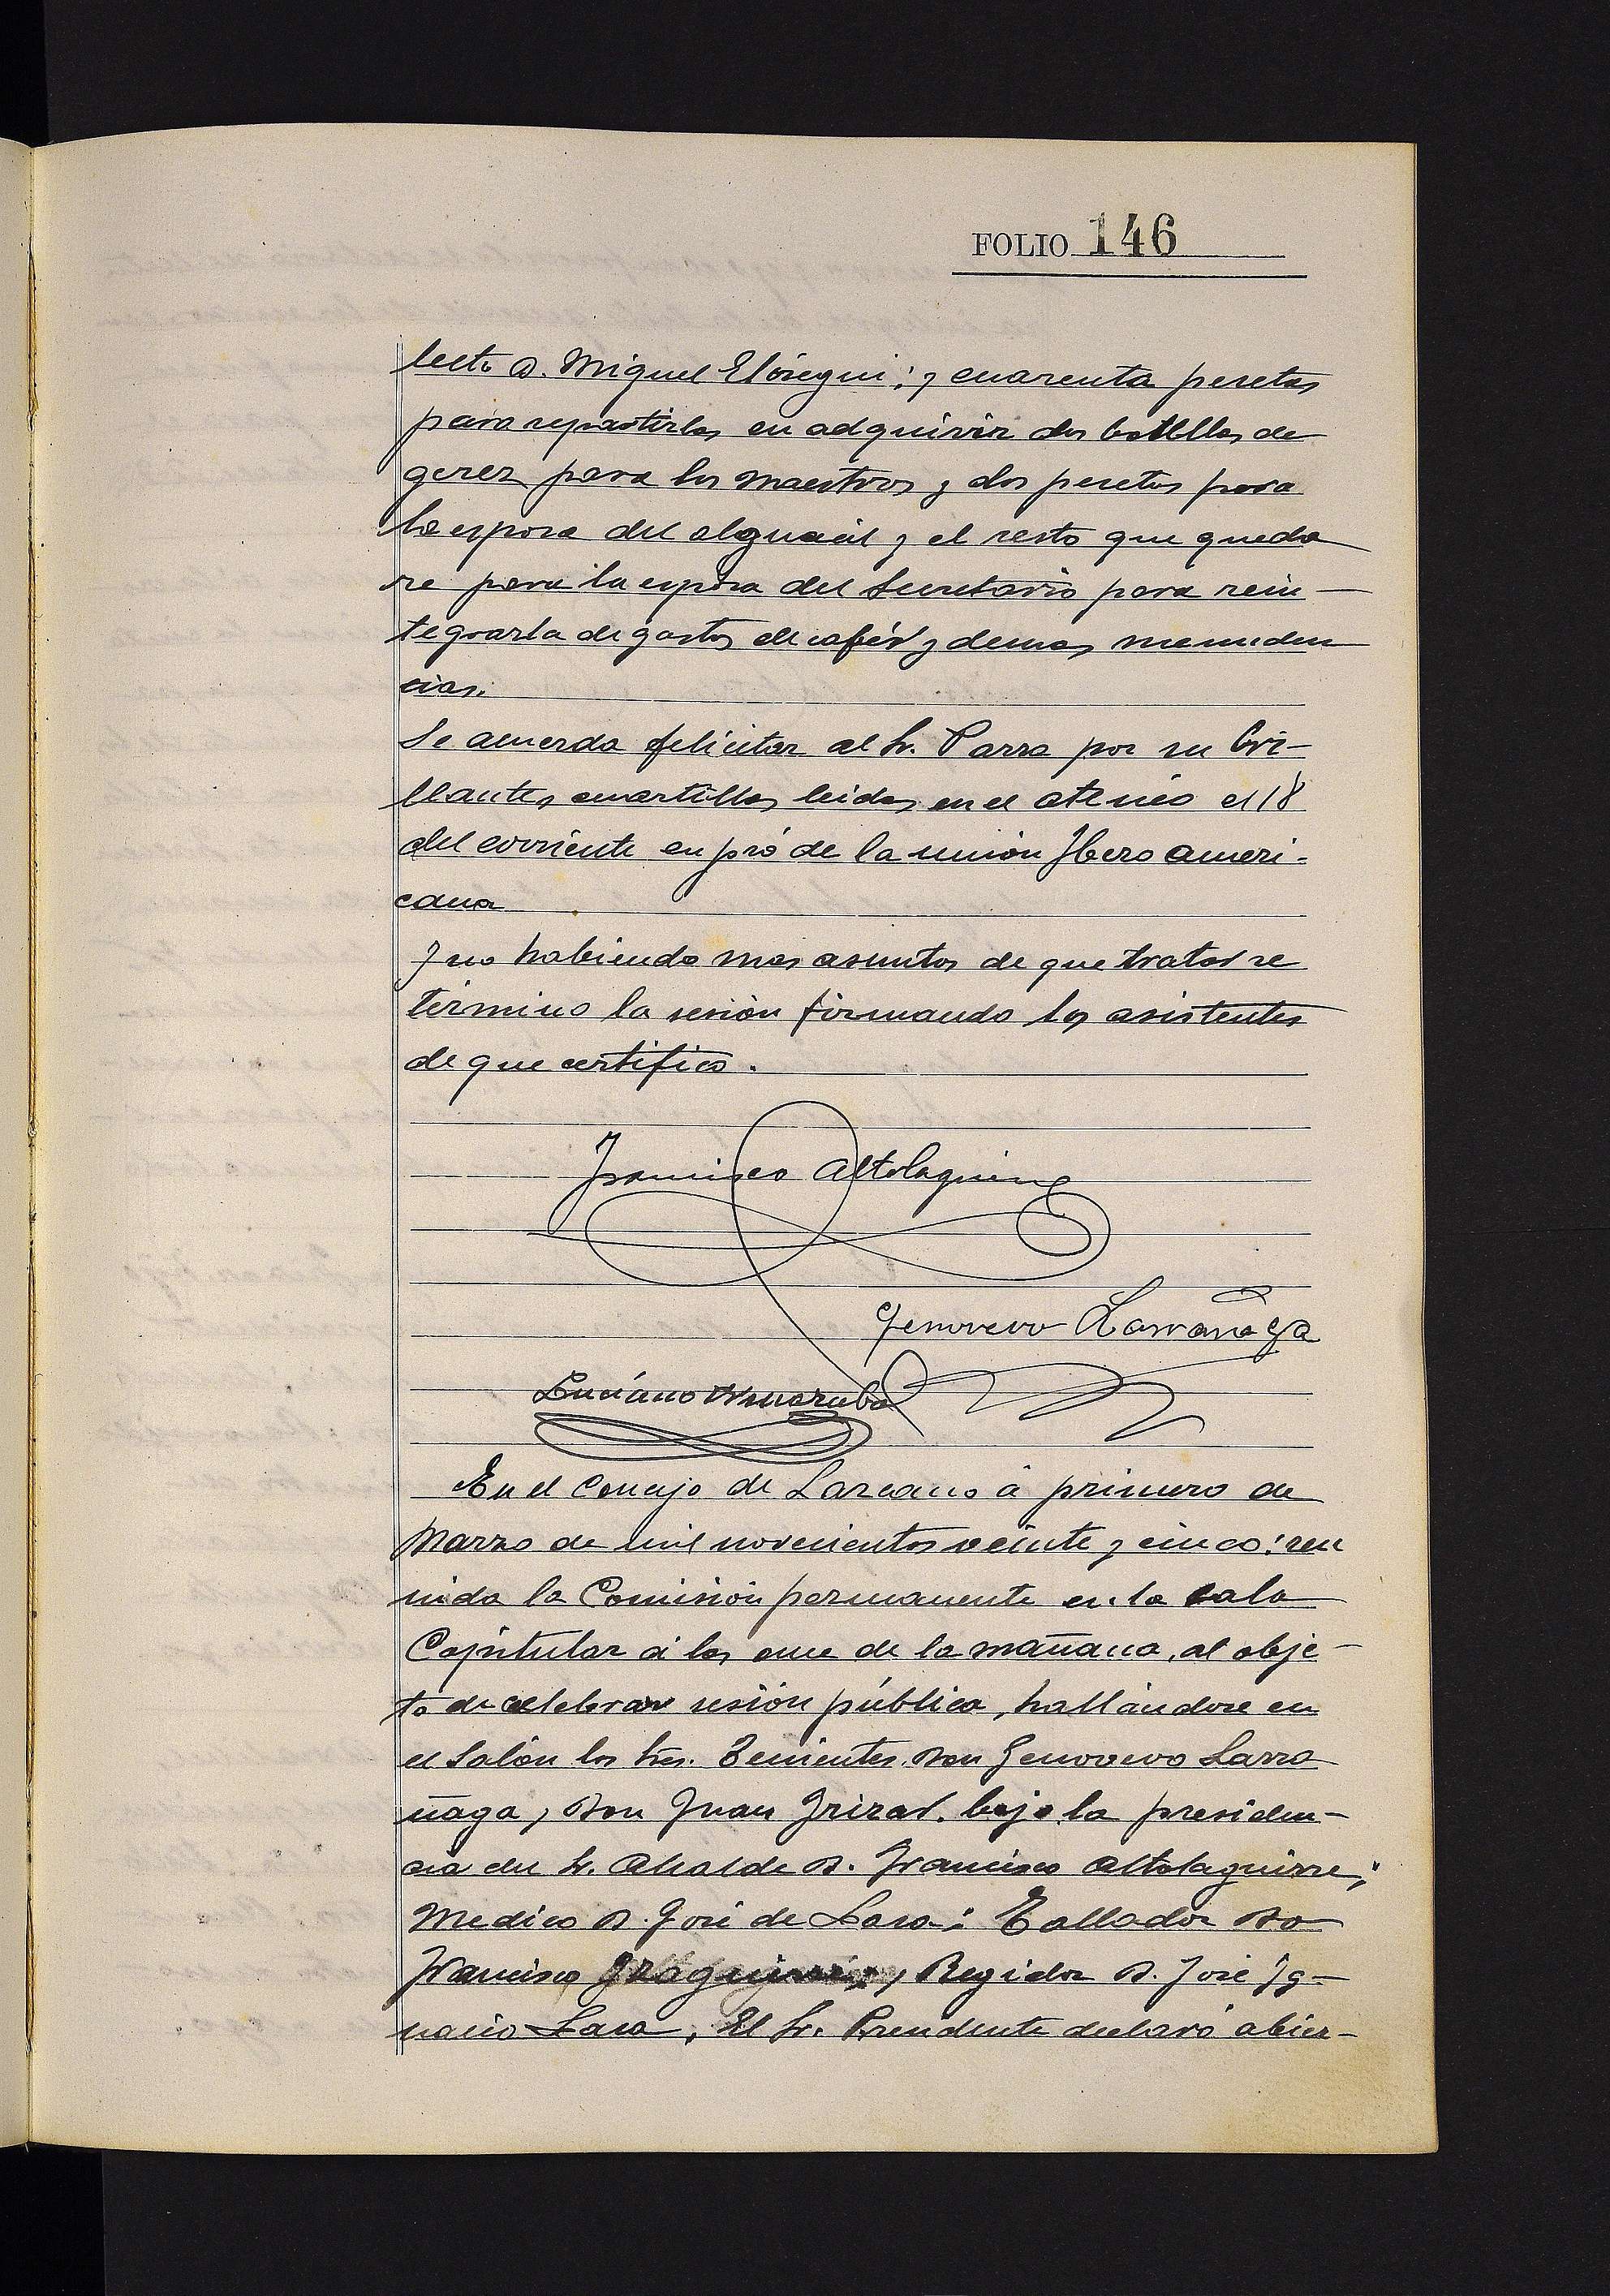 FOLIO 146
lecto D. Miguel Elósegui; y cuarenta pesetas
para repartirlas en adquirir dos botellas de
gerez para los maestros y dos pesetas para
la esposa del alguacil y el resto que queda
re para la esposa del Secretario para rein-
tegrarla de gastos de cafés y demas menuden
cias.
Se acuerda felicitar al Sr. Parra por su bri-
llantes cuartillas leidas en el ateneo el 18
del corriente en pró de la unión Ibero ameri-
cana
Y no habiendo mas asuntos de que tratar se
término la sesión firmando los asistentes
de que certifico.
Francisco Altolaguirre
Genovevo Larrañaga
Luciano
En el Concejo de Lazcano á primero de
Marzo de mil novecientos veinte y cinco: reu
nida la Comisión permanente en la sala
Capitular á las once de la mañana, al obje-
to de celebrar sesión pública, hallándose en
el Salón los Sres. Tenientes, Don Genovevo Larra
ñaga, Don Juan Irizar. bajo la presiden-
cia del Sr. Alcalde D. Francisco Altolaguirre;
Medico D. José de Lasa: Tallador Do
Francisco , Regidor D. José Ig-
nacio Lasa, El Sr. Presidente declaró abier-